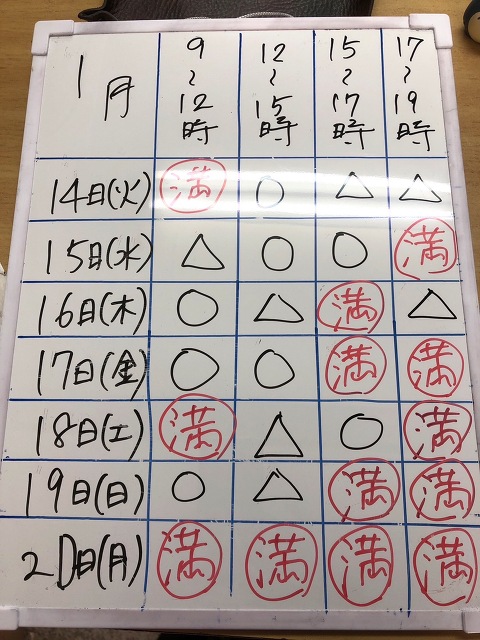 1月 9〜12時 12〜15時 15〜17時 17〜19時
14日(火) 満 ○ △ △
15日(水) △ ○ ○ 満
16日(木) ○ △ 満 △
17日(金) ○ ○ 満 満
18日(土) 満 △ ○ 満
19日(日) ○ △ 満 満
20日(月) 満 満 満 満